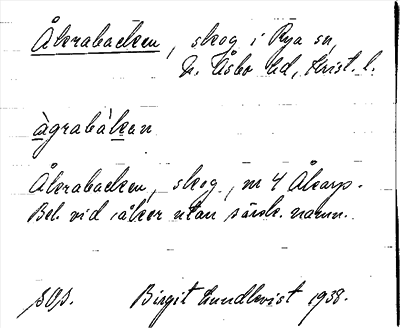 Åkrabacken, skog i Rya sn,
N. Åsbo hd, Krist. l.
àgrabàkan
Åkrabacken, skog, nr 4 Åkarp.
Bel. vid åker utan särsk. namn.
Birgit Lundkvist 1938.